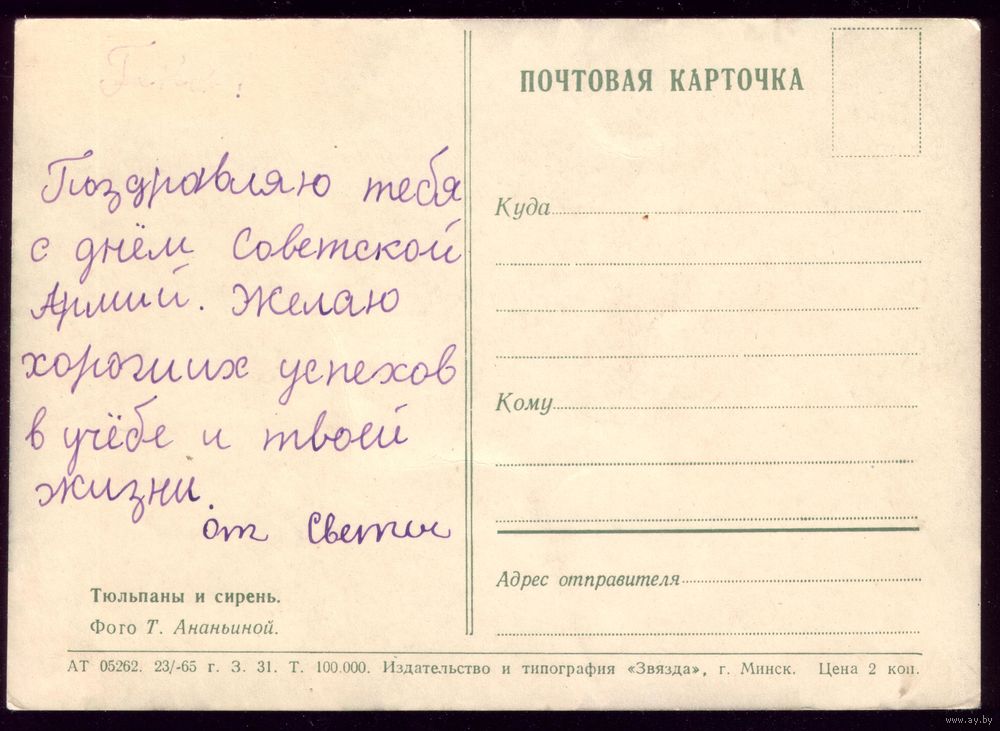 Поздравляю тебя
с днём Советской
Армий. Желаю
хороших успехов
в учёбе и твоей
жизни.
от Светы
Тюльпаны и сирень.
Фото Т. Ананьиной.
ПОЧТОВАЯ КАРТОЧКА
Куда
Кому
Адрес отправителя
АТ 05262. 23/-65 г. З. 31. Т. 100.000. Издательство и типография «Звязда», г. Минск. Цена 2 коп.
www.ay.by